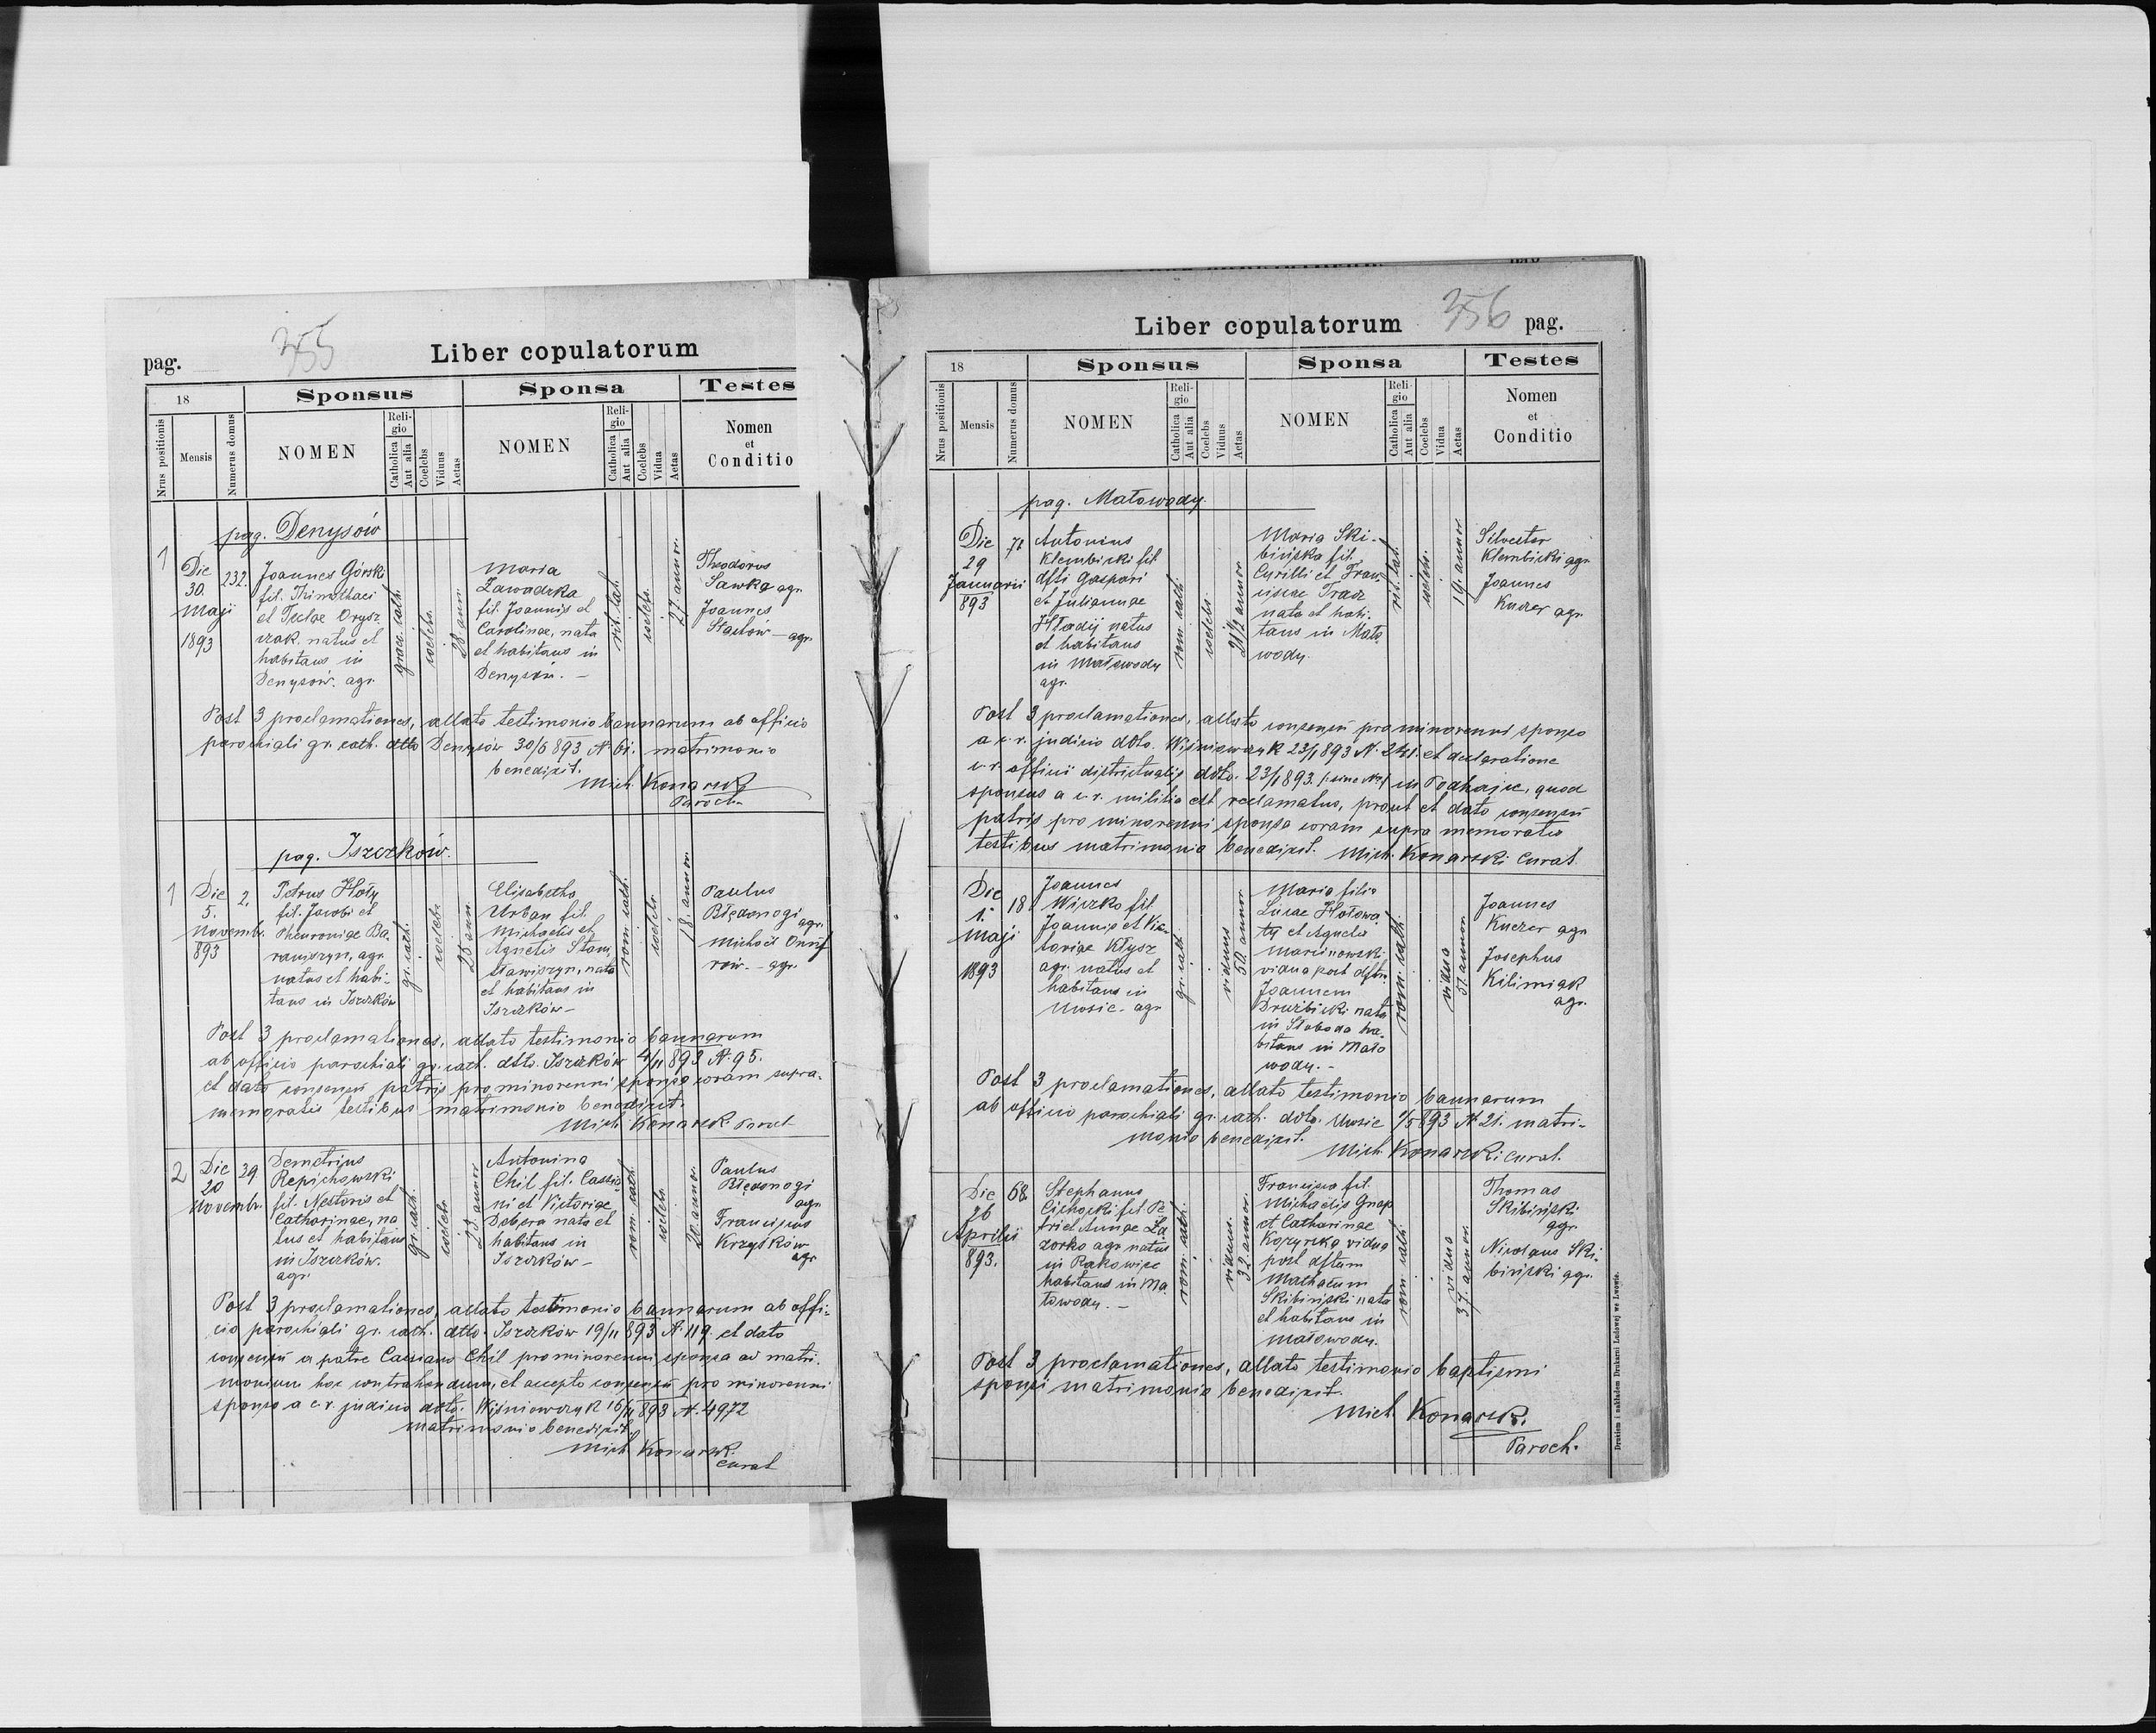 355
pag.
Liber copulatorum
18
Sponsus
Sponsa
Testes
Nrus positionis
Mensis
Numerus domus
NOMEN
Religio
Catholica
Aut alia
Coelebs
Viduus
Aetas
NOMEN
Religio
Catholica
Aut alia
Coelebs
Vidua
Aetas
Nomen
et
Conditio
pag. Denysów
1
Die
30.
Maji
1893
232.
Joannes Górski
fil. Thimothaei
et Teclae Orysz
czak. natus et
habitans in
Denysów. agr.
graec. cath.
coelebs.
28 ann.
Maria
Zawadzka
fil. Joannis et
Carolinae, nata
et habitans in
Denysów. –
rit. lat.
coelebs.
27. annor.
Theodorus
Sawka agr.
Joannes
Stachów – agr.
Post 3 proclamationes, allato testimonio bannarum ab officio
parochiali gr. cath. dtto Denysów 30/5 893 N. 61. matrimonio
benedixit.
Mich. Konarski
Paroch.
pag. Iszczków.
1
Die
5.
Novembr.
893
2.
Petrus Hoły
fil. Jacobi et
Pheuroniae Ba-
raniszyn, agr.
natus et habi-
tans in Iszczków
gr. cath.
coelebs
28 ann.
Elisabetha
Urban fil.
Michaelis et
Agnetis Stani
sławiszyn, nata
et habitans in
Iszczków –
rom. cath.
coelebs
18. annor.
Paulus
Błędonogi
agr.
Michael Onuf
rów. – agr.
Post 3 proclamationes, allato testimonio bannarum
ab officio parochiali gr. cath. dtto. Iszczków 4/11 893 N. 95.
et dato consensu patris pro minorenni sponsa coram supra-
memoratis testibus matrimonio benedixit.
Mich. Konarski Paroch
2
Die
20
Novembr.
39
Demetrius
Repichowski
fil. Nestoris et
Catharinae, na
tus et habitans
in Iszczków.
agr.
gr. cath.
coelebs
23 annor
Antonina
Chil fil. Cassia
ni et Victoriae
Debera nata et
habitans in
Iszczków –
rom. cath.
coelebs.
20. annor.
Paulus
Błędonogi
agr
Franciscus
Krzyśków
agr
Post 3 proclamationes, allato testimonio bannarum ab offi-
cio parochiali gr. cath. dtto. Iszczków 19/11 893 N. 119. et dato
consensu a patre Cassiano Chil pro minorenni sponsa ad matri-
monium hoc contrahendum, et accepto consensu pro minorenni
sponso a c. r. judicio dtto. Wiśniowczyk 16/11 893 N. 4972
matrimonio benedixit.
Mich Konarski
curat
Liber copulatorum
356
pag.
18
Sponsus
Sponsa
Testes
Nrus positionis
Mensis
Numerus domus
NOMEN
Religio
Catholica
Aut alia
Coelebs
Viduus
Aetas
NOMEN
Religio
Catholica
Aut alia
Coelebs
Vidua
Aetas
Nomen
et
Conditio
pag. Małowody.
Die
29
Januarii
893
71
Antonius
Klembicki fil
dfti Gaspari
et Juliannae
Hładij natus
et habitans
in Małowody
agr.
rom. cath.
coelebs.
21 1/2 annor
Maria Ski-
bińska fil.
Cyrilli et Fran
ciscae Tracz
nata et habi-
tans in Mało
wody.
rit. lat.
coelebs.
19. annor
Silvester
Klembicki agr.
Joannes
Kuczer agr.
Post 3 proclamationes, allato consensu pro minorenni sponso
a c. r. judicio dtto. Wiśniowczyk 23/1 893 N. 241. et declaratione
c. r. officii districtualis dtto. 23/1 893. /:sine No:/ in Podhajce, quod
sponsus a c. r. militia est reclamatus, prout et dato consensu
patris pro minorenni sponsa coram supra memoratis
testibus matrimonio benedixit. Mich. Konarski curat
Die
1.
Maji
1893
18
Joannes
Wiczko fil
Joannis et Vic-
toriae Kłysz
agr. natus et
habitans in
Uwsie – agr
gr. cath.
viduus
50 annor
Maria filia
Lucae Hołowa
ty et Agnetis
Marcinowski
vidua post dftm
Joannem
Drużbicki nata
in Słoboda ha-
bitans in Mało
wody. –
rom. cath.
vidua
51 annor.
Joannes
Kuczer agr
Josephus
Kilimiak
agr.
Post 3 proclamationes, allato testimonio bannarum
ab officio parochiali gr. cath. dtto. Uwsie 1/5 893 N 21. matri-
monio benedixit.
Mich. Konarski curat.
Die
26
Aprilis
893.
68
Stephanus
Cichocki fil. Pe
tri et Annae Ła
zorko agr. natus
in Rakowiec
habitans in Ma
łowody. –
rom. cath.
viduus.
32 annor.
Francisca fil.
Michaelis Gnap
et Catharinae
Kozyrska vidua
post dftum
Mathaeum
Skibiński nata
et habitans in
Małowody.
rom. cath.
vidua
37. annor.
Thomas
Skibiński
agr.
Nicolaus Ski-
biński agr.
Post 3 proclamationes, allato testimonio baptismi
sponsi matrimonio benedixit.
Mich. Konarski.
Paroch.
Drukiem i nakładem Drukarni Ludowej we Lwowie.